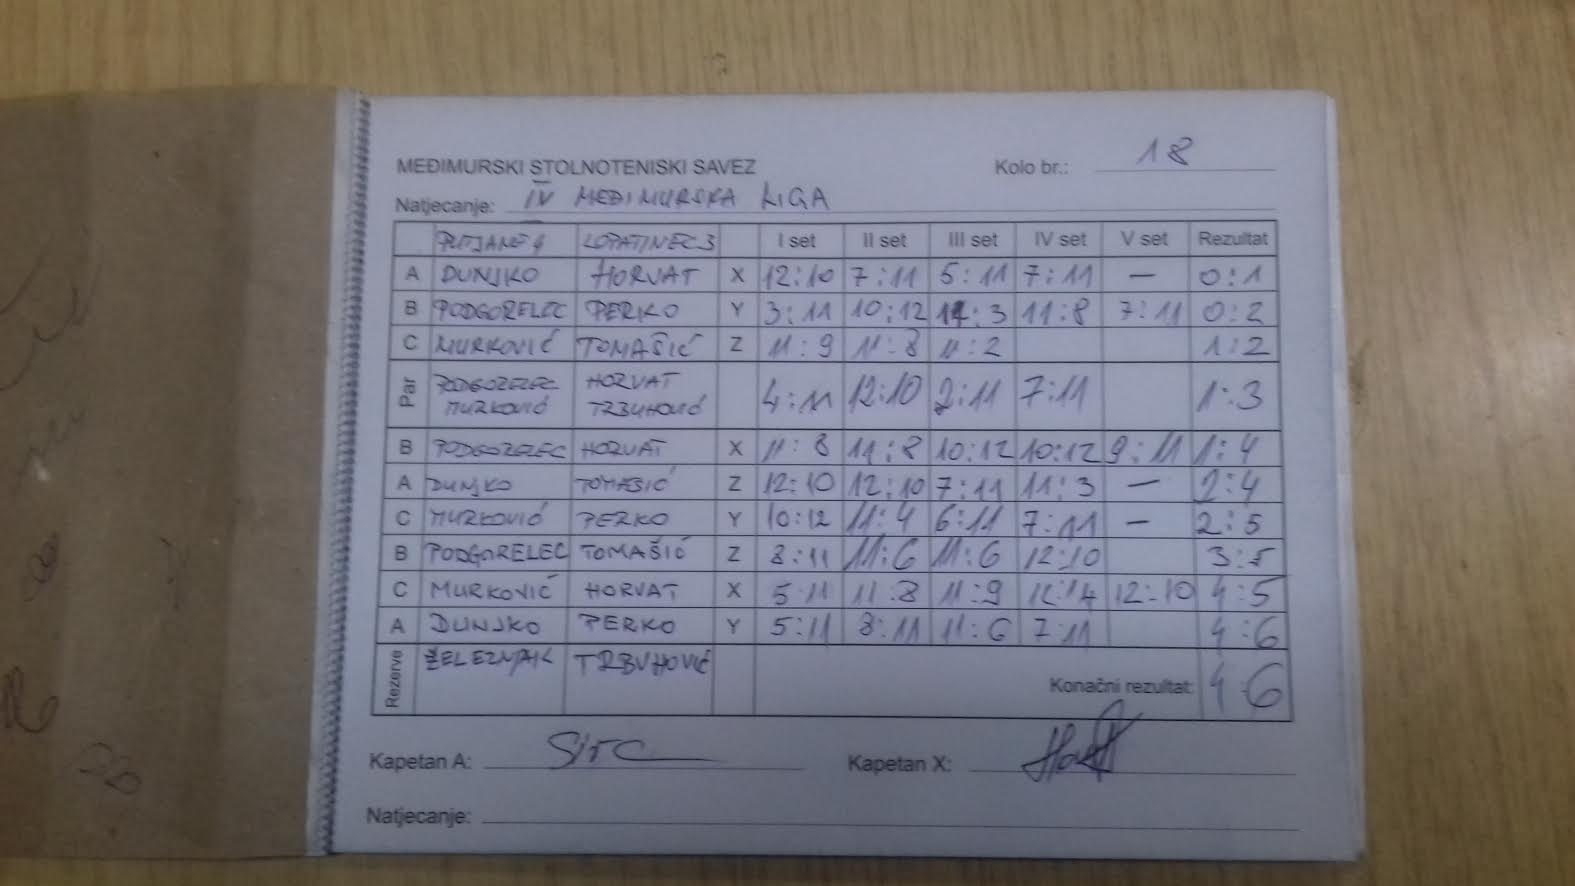 MEĐIMURSKI STOLNOTENISKI SAVEZ Kolo br.: 18
Natjecanje: IV MEĐIMURSKA LIGA
PUŠĆANE 4 LOPATINEC 3 I set II set III set IV set V set Rezultat
A DUNJKO HORVAT X 12:10 7:11 5:11 7:11 — 0:1
B PODGORELEC PERKO Y 3:11 10:12 11:3 11:8 7:11 0:2
C MURKOVIĆ TOMAŠIĆ Z 11:9 11:8 11:2 1:2
Par PODGORELEC HORVAT 4:11 12:10 2:11 7:11 1:3
MURKOVIĆ TRBUHOVIĆ
B PODGORELEC HORVAT X 11:8 11:8 10:12 10:12 9:11 1:4
A DUNJKO TOMAŠIĆ Z 12:10 12:10 7:11 11:3 — 2:4
C MURKOVIĆ PERKO Y 10:12 11:4 6:11 7:11 — 2:5
B PODGORELEC TOMAŠIĆ Z 8:11 11:6 11:6 12:10 3:5
C MURKOVIĆ HORVAT X 5:11 11:8 11:9 12:14 12:10 4:5
A DUNJKO PERKO Y 5:11 8:11 11:6 7:11 4:6
Rezerve ŽELEZNJAK TRBUHOVIĆ Konačni rezultat: 4:6
Kapetan A: Kapetan X:
Natjecanje: